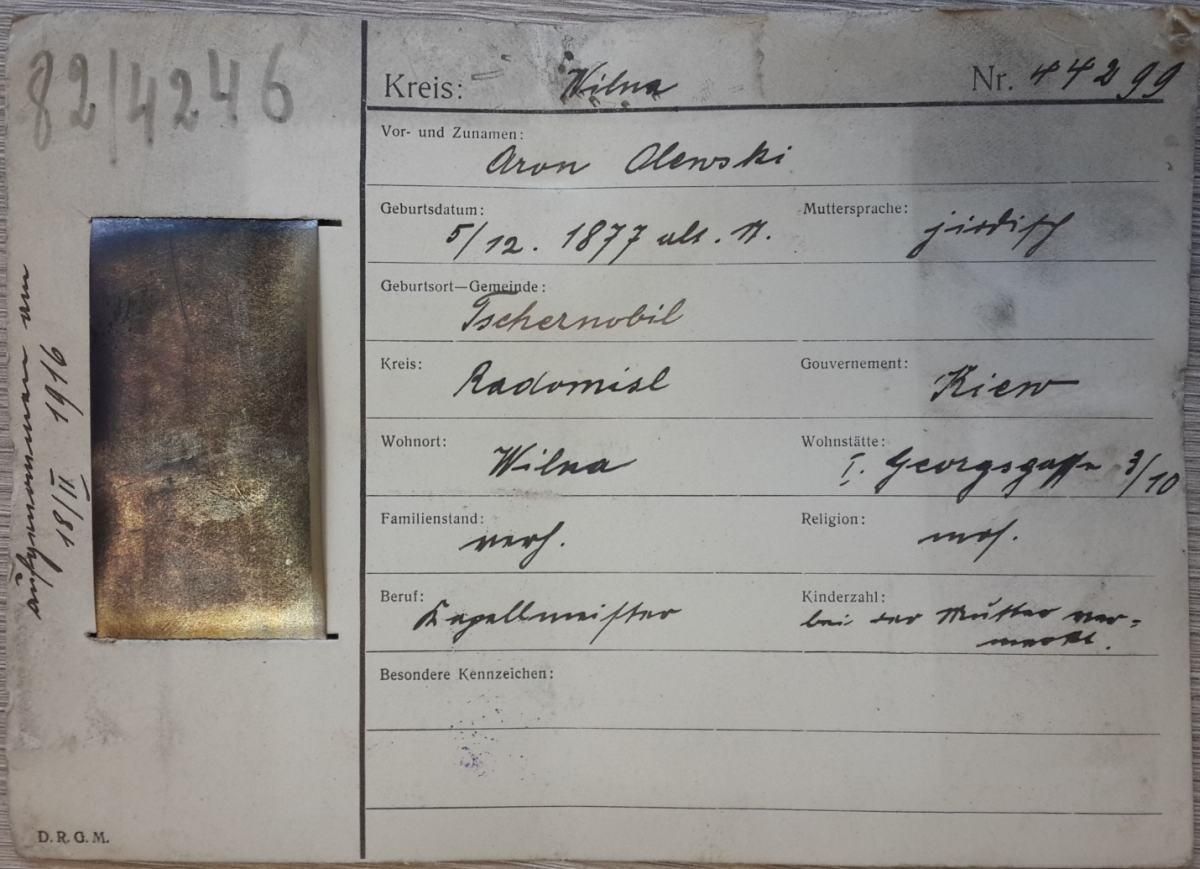 82/4246
Kreis: Wilna Nr. 44299
Vor- und Zunamen:
Aron Olewski
Geburtsdatum: Muttersprache:
5/12. 1877 alt. St. jüdisch
Geburtsort—Gemeinde:
Tschernobil
Kreis: Gouvernement:
Radomisl Kiew
Wohnort: Wohnstätte:
Wilna I. Georgsgasse 3/10
Familienstand: Religion:
verh. mos.
Beruf: Kinderzahl:
Kapellmeister bei der Mutter ver=
merkt.
Besondere Kennzeichen:
aufgenommen am
18/II 1916
D. R. G. M.